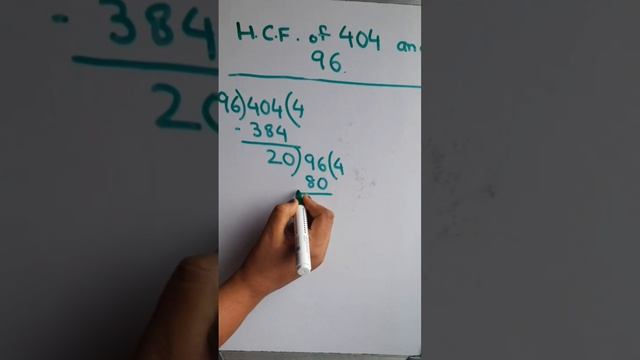 H.C.F. of 404 an
96.
96)404(4
- 384
20)96(4
80